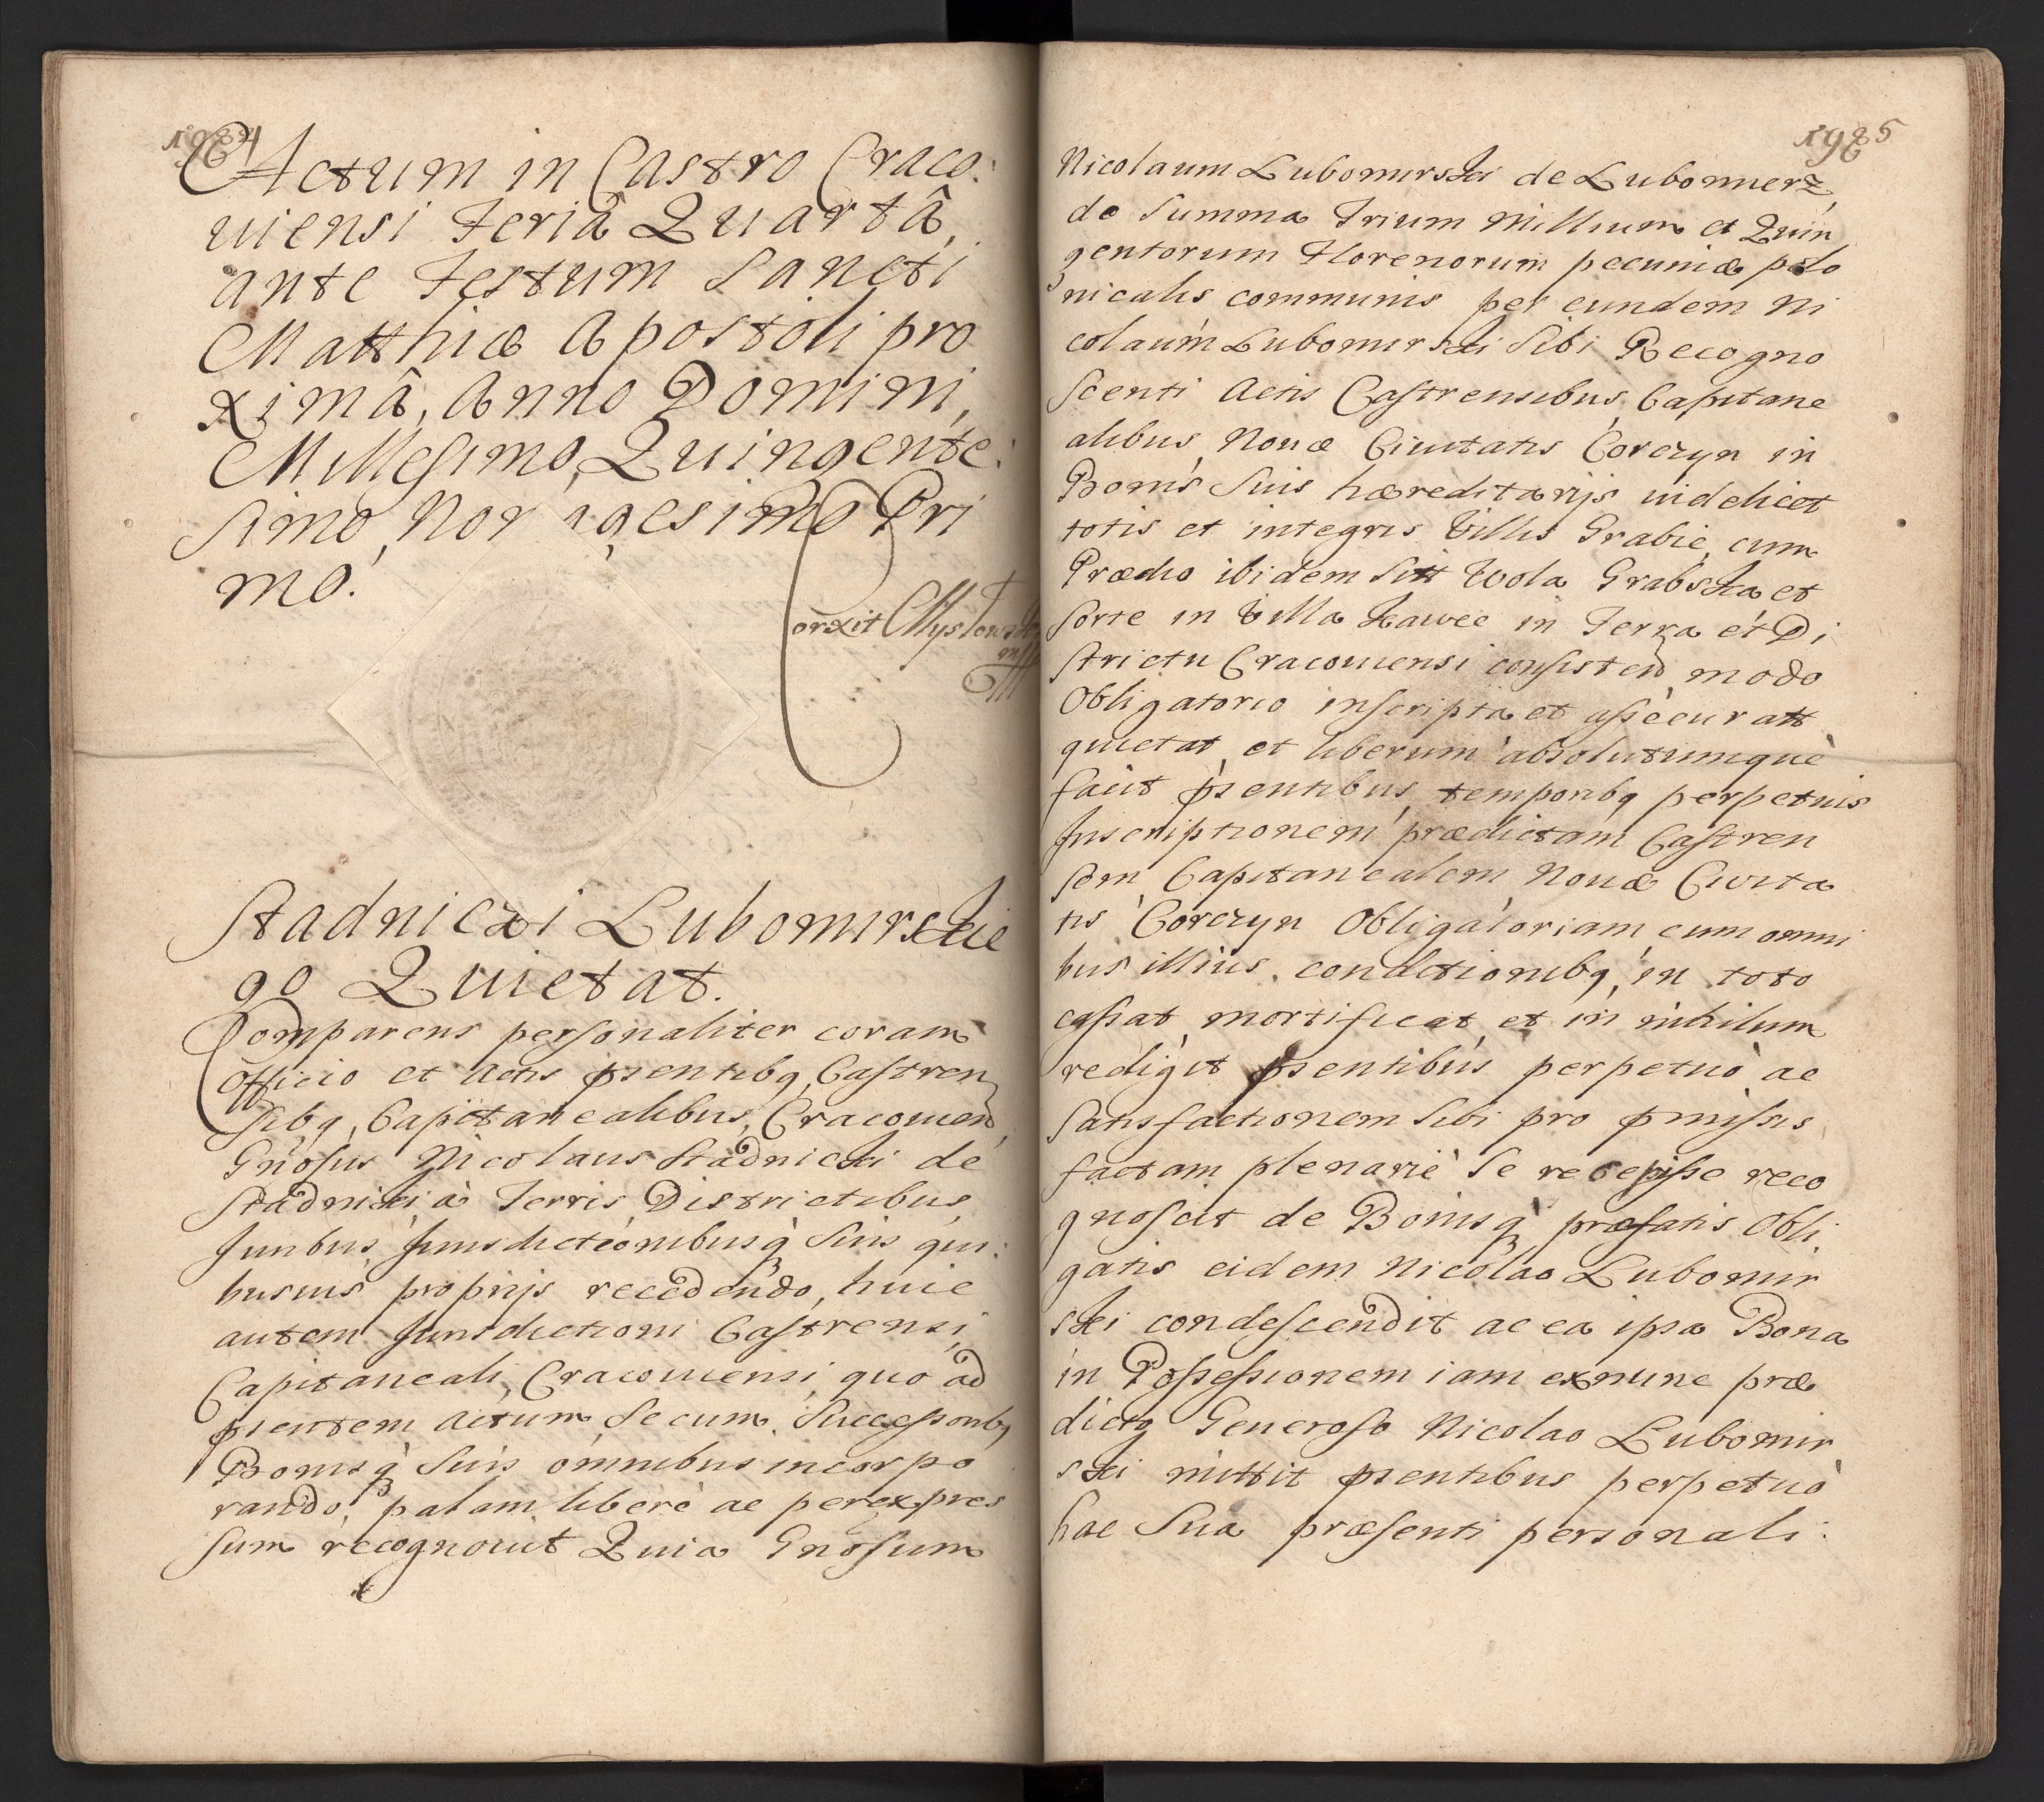 1984
Actum in Castro Craco:
uiensi Feriâ Quartâ,
ante Festum Sancti
Matthiæ Apostoli pro
ximâ, Anno Domini,
Millesimo, Quingente:
simo, Nonagesimo Pri
mo.
Stadnicki Lubomirskie
go Quietat.
Comparens personaliter coram
Officio et Actis pńentibq, Castren
sibq, Capitanealibus, Cracouień,
Gńosus Nicolaus Stadnicki de
Stadniki à Terris, Districtibus,
Juribus, Jurisdictionibusq̀ Suis qui:
busuis proprijs recedendo, huic
autem Jurisdictioni Castrensi,
Capitaneali, Cracouiensi, quo ad
pńentem Actum, Se cum, Successoribq
Bonisq̀ Suis omnibus incorpo
rando, palam liberè ac perexpres
sum recognouit Quia Gńosum
1985
Nicolaum Lubomirski de Lubomierz,
de Summa Trium Millium et Quin
gentorum Florenorum pecuniæ polo
nicalis communis per eundem Ni
colaum Lubomirski Sibi Recogno
scenti Actis Castrensibus, Capitane
alibus, Nouæ Ciuitatis Corczyn in
Bonis Suis hæreditarijs uidelicet
totis et integris Villis Grabie, cum
Prædio ibidem Sitt Wola Grabska et
Sorte in Villa Kawec in Terra et Di
strictu Cracouiensi consisteń, modo
Obligatorio inscripta et assecuratt
quietat, et liberum absolutumquè
facit pńentibus, temporibq perpetuis
Inscriptionem prædictam Castren
sem, Capitanealem Nouæ Ciuita
tis Corczyn Obligatoriam, cum omni
bus illius, conditionibq, in toto
cassat, mortificat, et in nihilum
redigit pńentibus perpetuò ac
Satisfactionem Sibi pro pmissis
factam plenariè Se recepisse reco
gnoscit de Bonisq̀ præfatis Obli
gatis eidem Nicolao Lubomir
ski condescendit ac ea ipsa Bona
in Possessionem iam exnunc præ
dictq Generoso Nicolao Lubomir
ski mittit pńentibus perpetuò
hac Sua præsenti personali: